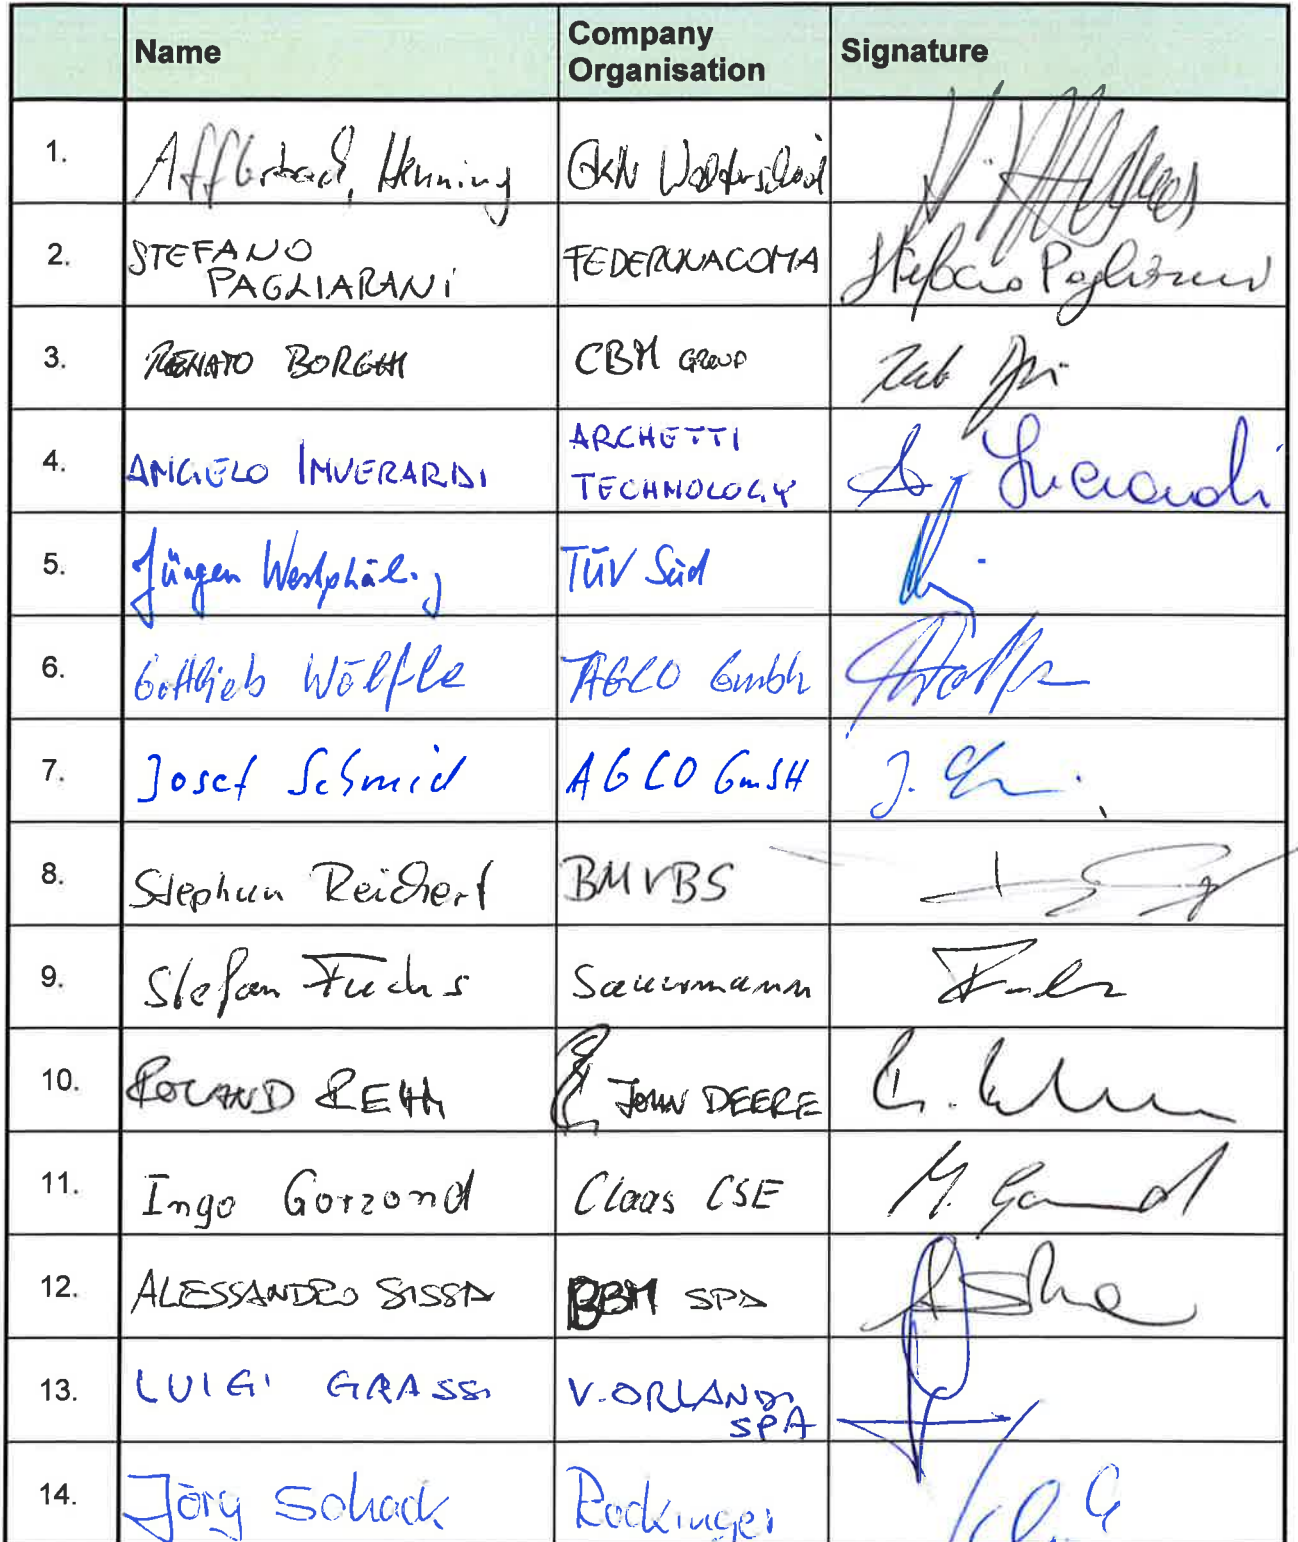 Name Company Organisation Signature
1. Afflerbach, Henning GKN Walterscheid
2. STEFANO PAGLIARANI FEDERUNACOMA Stefano Pagliarani
3. RENATO BORGHI CBM GROUP
4. ANGELO INVERARDI ARCHETTI TECHNOLOGY A. Inverardi
5. Jürgen Westphäling TÜV Süd
6. Gottlieb Wölfle AGCO GmbH
7. Josef Schmid AGCO GmbH
8. Stephan Reichert BMVBS
9. Stefan Fuchs Sauermann Fuchs
10. ROLAND REHM JOHN DEERE
11. Ingo Gorzond Claas CSE
12. ALESSANDRO SISSA BBM SPA
13. LUIGI GRASSI V. ORLANDI SPA
14. Jörg Schack Rockinger